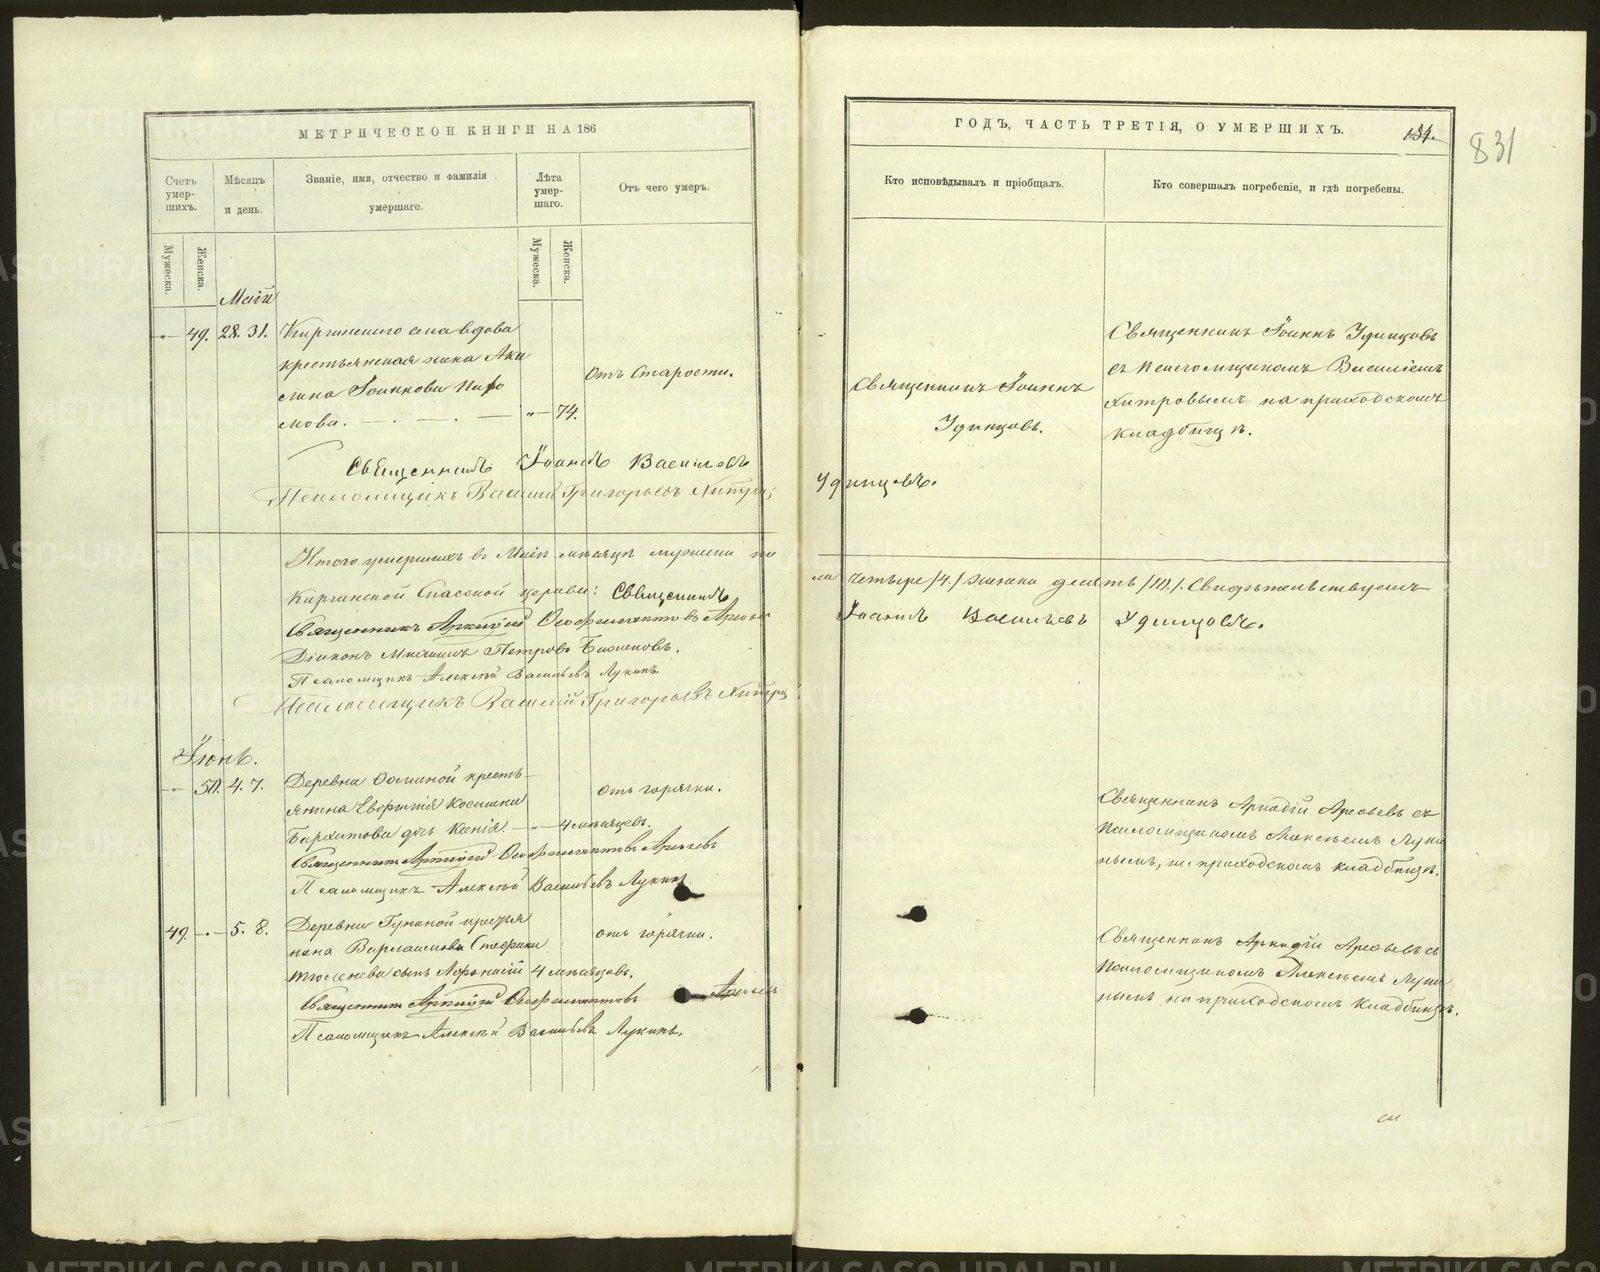 МЕТРИЧЕСКОЙ КНИГИ НА 186
Счетъ умер-шихъ.
Мѣсяцъ и день.
Званіе, имя, отчество и фамилія умершаго.
Лѣта умер-шаго.
Отъ чего умеръ.
Мужеска.
Женска.
Мужеска.
Женска.
Маій
49. 28. 31. Киргинскаго села вдова
крестьянская жена Аки
лина Іоаннова
нова.
74.
Отъ Старости.
Священникъ Іоаннъ Васильевъ
Псаломщикъ Василій Григорьевъ
Итого умершихъ въ Маіѣ мѣсяцѣ мужеска по
Киргинской Спасской церкви: Священникъ
Священникъ Аркадій Феофилактовъ
Діаконъ Михаилъ Петровъ
Псаломщикъ Алексѣй Васильевъ Лукинъ.
Псаломщикъ Василій Григорьевъ
Іюнь.
50. 4. 7. Деревни кресть-
янина
дочь Ксенія.
4 мѣсяцевъ.
отъ горячки.
Священникъ Аркадій Феофилактовъ Арефьевъ
Псаломщикъ Алексѣй Васильевъ Лукинъ
49. 5. 8. Деревни
нина Варлаама
сынъ Афанасій 4 мѣсяцовъ.
отъ горячки.
Священникъ Аркадій Феофилактовъ
Псаломщикъ Алексѣй Васильевъ Лукинъ.
ГОДЪ, ЧАСТЬ ТРЕТІЯ, О УМЕРШИХЪ.
134.
831
Кто исповѣдывалъ и пріобщалъ.
Кто совершалъ погребеніе, и гдѣ погребены.
Священникъ Іоаннъ
Удинцовъ.
Священникъ Іоаннъ Удинцовъ
съ Псаломщикомъ Василіемъ
Хитровымъ на приходскомъ
кладбищѣ.
Удинцовъ.
ла четыре /4./ женска десять /10./. Свидѣтельствуемъ
Іоаннъ Васильевъ Удинцовъ.
Священникъ Аркадій Арефьевъ съ
Псаломщикомъ Алексѣемъ Луки
нымъ, на приходскомъ кладбищѣ.
Священникъ Аркадій Арефьевъ съ
Псаломщикомъ Алексѣемъ Луки
нымъ на приходскомъ кладбищѣ.
METRIKI.GASO-URAL.RU